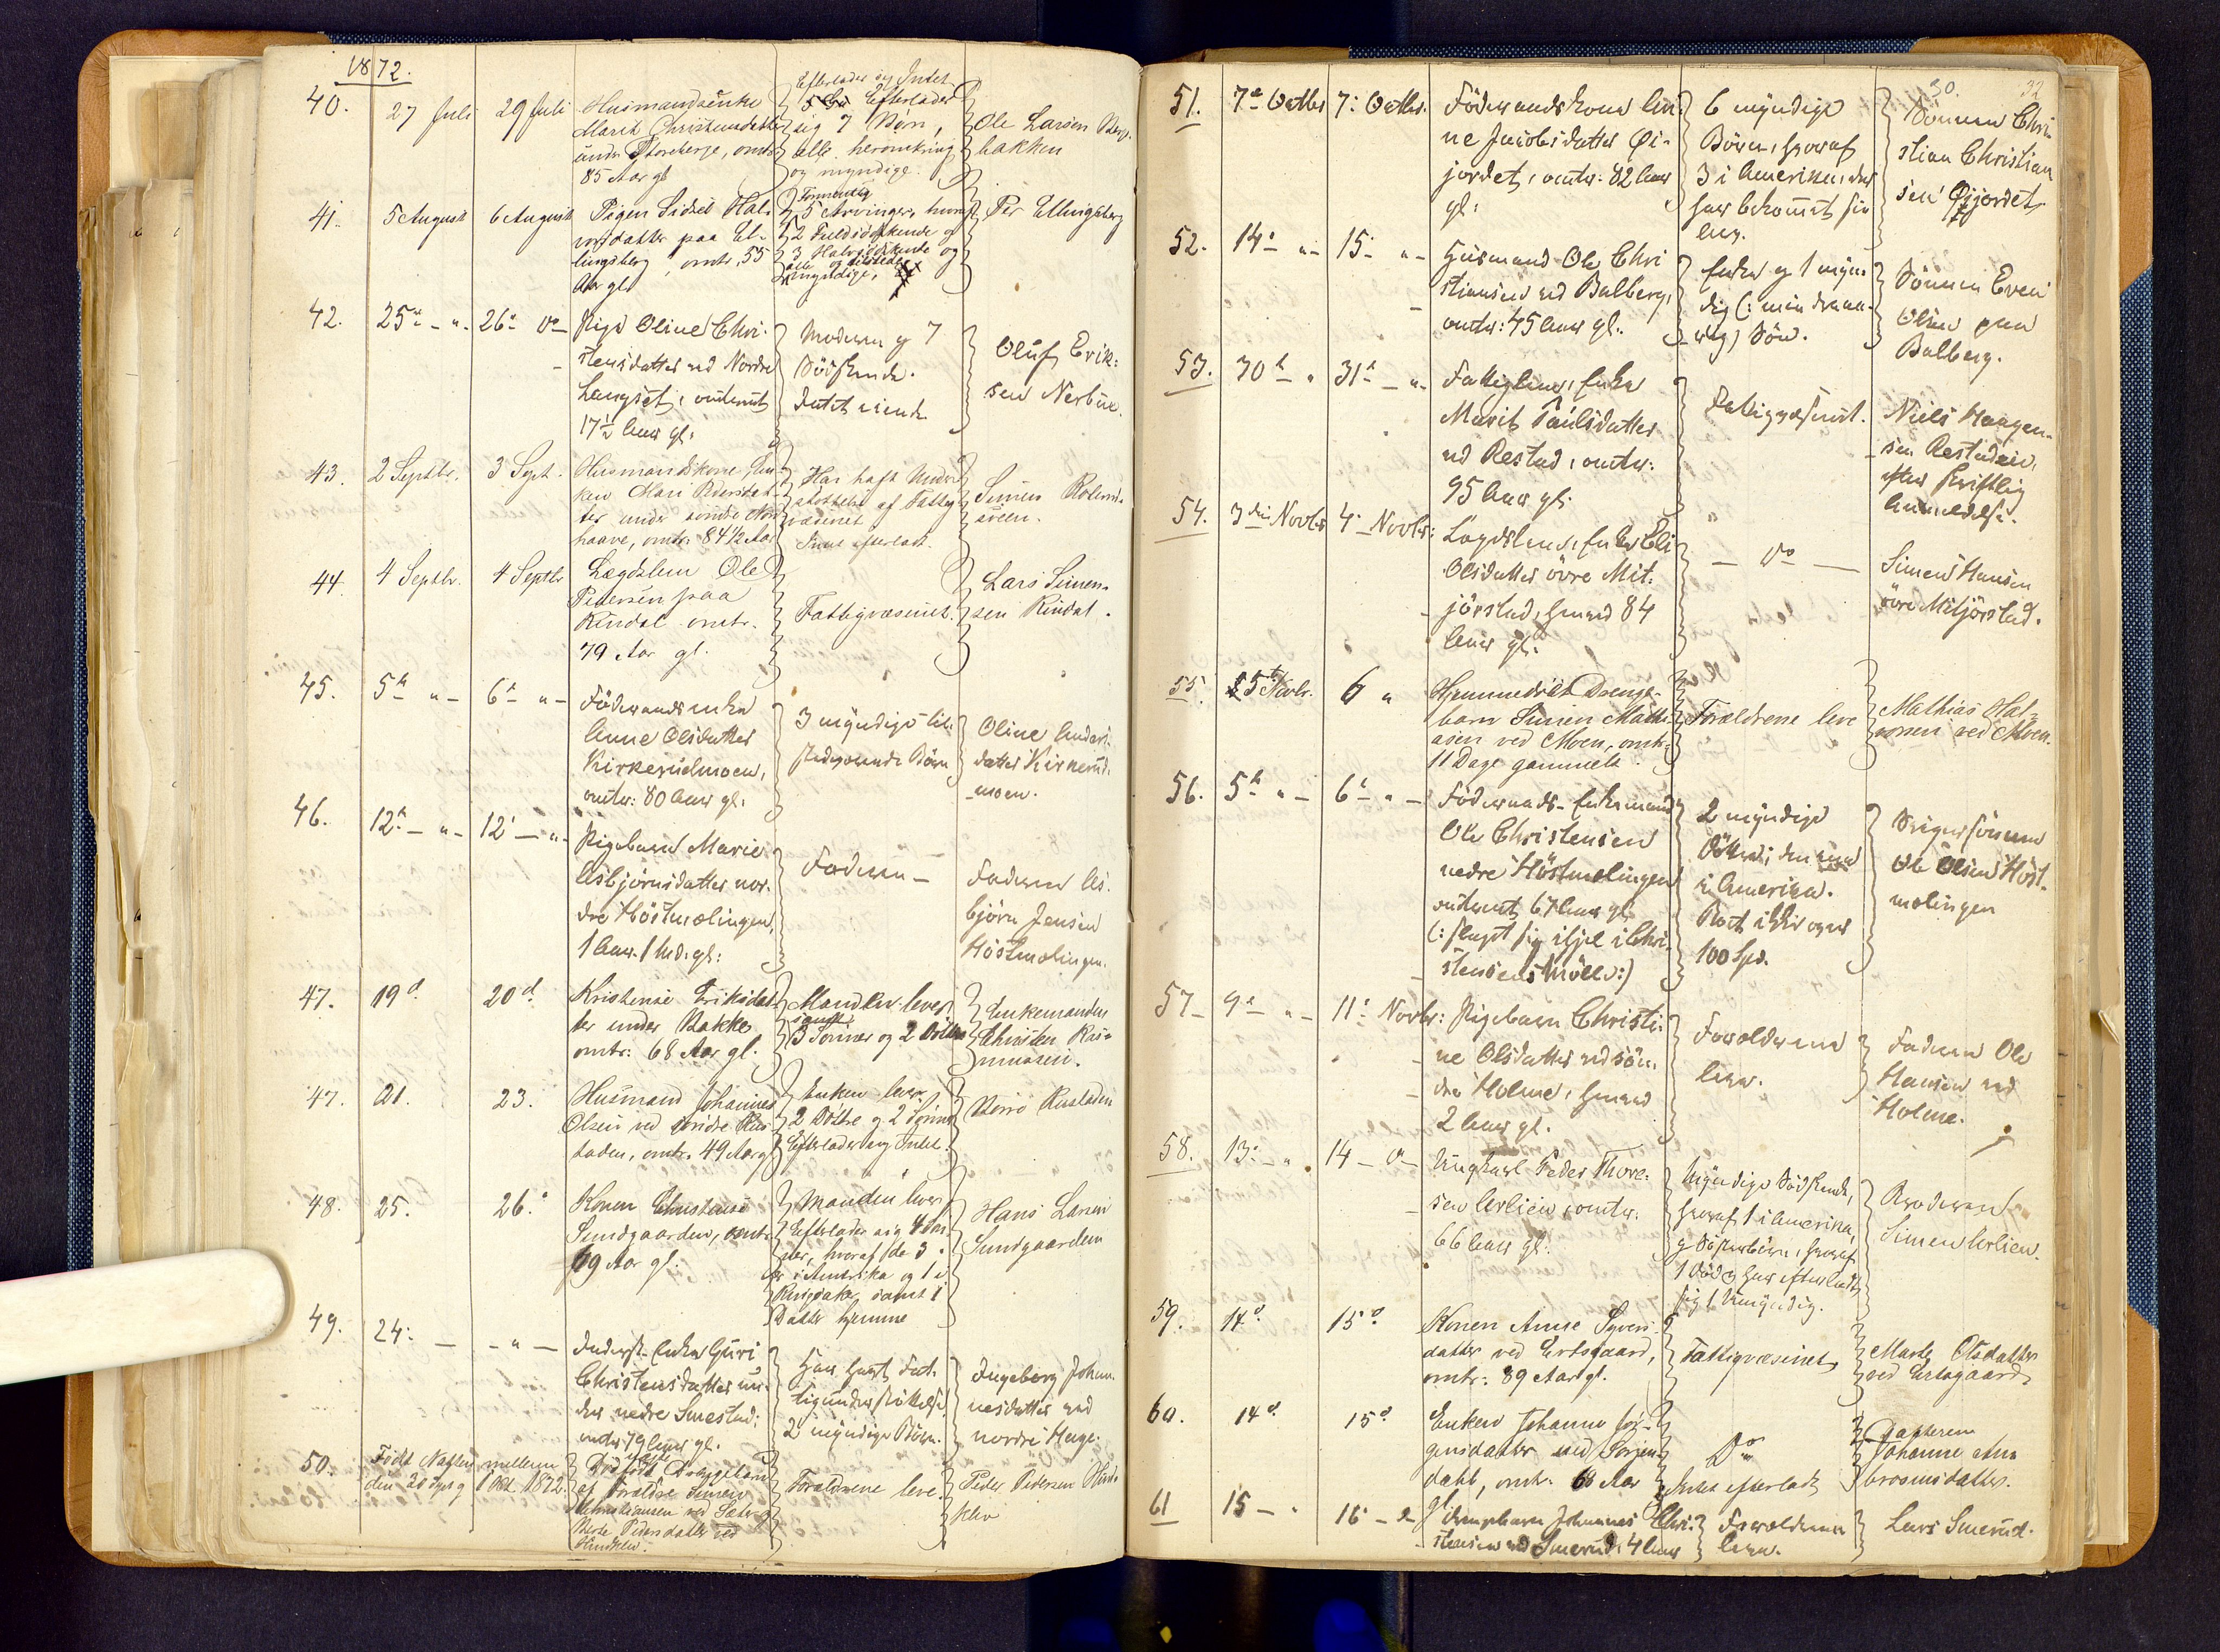 1872.
40. 27 Juli 29 Juli Husmandsenke
Marit Christensdatter
under Storeberge, omtr.
85 Aar gl
Efterlader sig Intet
Efterlader
sig 7 Børn,
alle heromkring
og myndige.
Ole Larsen Berg-
bakken
41. 5 August 6 August Pigen Sidsel Hal-
vorsdatter paa El-
lingsberg, omtr. 55
Aar gl.
Formentlig
5 Arvinger, hvoraf
2 Fuldsødskende og
3 Halvsødskende og
alle
myndige.
Per Ellingsberg
42. 25de - " - 26de do Pige Oline Chri-
stensdatter ved Nordre
Langset, omtrent
17½ Aar gl.
Moderen og 7
Södskende.
Intet eiende
Oluf Erik-
sen Nerbue.
43. 2 Septbr. 3 Sept. Husmandskone En-
ken Mari Pedersdat-
ter under søndre Nord-
haave, omtr. 84½ Aar
Har haft Under-
støttelse af Fattig-
væsenet
Intet efterladt.
Simen Rolvn-
sveen.
44. 4 Septbr. 4 Septbr Lægdslem Ole
Pedersen paa
Kindal omtr.
79 Aar gl.
Fattigvæsenet.
Lars Simen-
sen Kindal.
45. 5te " - 6te " - Föderaadsenke
Anne Olsdatter
Kirkerudmoen,
omtr: 80 Aar gl.
3 myndige til-
stedeværende Börn
Oline Anders-
datter Kirkerud-
moen.
46. 12te - " - 12te - " - Pigebarn Marie
Asbjörnsdatter nor-
dre Höstmælingen,
1 Aar 1 Md. gl:
Faderen -
Faderen As-
björn Jensen
Höstmælingen.
47. 19d. 20d. Kristense Eriksdat-
ter under Bakke
omtr: 68 Aar gl.
Manden lever
samt
3 Sønner og 2 Døttre
Enkemanden
Christen Ras-
mussen.
47. 21. 23. Husmand Johannes
Olsen ved søndre Rus-
taden, omtr. 49 Aar gl
Enken lever
2 Döttre og 2 Sønner
Efterlader sig Intet.
Børre Rustaden
48. 25. 26. Konen Christense
Sundgaarden, omtr
69 Aar gl.
Manden lever
Efterlader sig 4 Søn-
ner, hvoraf de 3
er i Amerika og 1 i
Ringsaker, samt 1
Datter hjemme
Hans Larsen
Sundgaarden
49. 24: - - " - Inderst-Enke Guri
Christensdatter un-
der nedre Smestad:
omtr 79 Aar gl.
Har havt Fat-
tigunderstöttelse.
2 myndige Börn.
Ingeborg Johan-
nesdatter ved
nordre Hage.
50. Født Natten mellem
den 30 Sept og 1 Okt 1872.
Dödfödt Drengebarn
af Forældre Simen
Christiansen ved Sæter og
Berte Pedersdatter ved
Forældrene leve
Peder Pedersen
30. 32
51. 7de Octbr 7: Octbr. Föderaadskone Li-
ne Jacobsdatter Öi-
jordet, omtr: 82 Aar
gl:
6 myndige
Börn, hvoraf
3 i Amerika, der
har bekommet sin
Arv.
Sönnen Chri-
stian Christian-
sen Öijordet
52. 14de " - 15 - " - Husmand Ole Chri
stiansen ved Balberg,
omtr: 45 Aar gl.
Enke og 1 myn-
dig (: mindreaa-
rig) Sön.
Sönnen Even
Olsen paa
Balberg.
53. 30te - " 31te - " - Fattiglem, Enke
Marit Paulsdatter
ved Restad, omtr:
95 Aar gl.
Fattigvæsenet.
Niels Haagen-
sen Restadeie,
efter skriftlig
Anmeldelse.
54. 3die Novbr 4 - Novbr: Lægdslem, Enke Eli
Olsdatter övre Mit-
jörstad, henved 84
Aar gl.
- do -
Simen Hansen
övre Mitjörstad.
55. 5te Novbr. 6 " Hjemmedöbt Drenge-
barn Simen Mathi-
asen ved Moen, omtr.
11 Dage gammelt.
Forældrene leve
Mathias Hal-
vorsen ved Moen.
56. 5te " - 6te " - Föderaads-Enkemand
Ole Christensen
nedre Höstmælingen
omtrent 67 Aar gl
(: slaget sig ihjel i Chri-
stensens Mölle:)
2 myndige
Döttre; den ene
i Amerika.
Boet ikke over
100 Spd.
Svigersönnen
Ole Olsen Höst-
mælingen
57 - 9de " - 11te Novbr: Pigebarn Christi-
ne Olsdatter ved sön-
dre Holme, henved
2 Aar gl.
Forældrene
leve.
Faderen Ole
Hansen ved
Holme.
58. 13: - " . 14 - do - Ungkarl Peder Thore-
sen Aslien, omtr.
66 Aar gl:
Myndige Södskende,
hvoraf 1 i Amerika,
og Söskenbörn, hvoraf
1 död og har efterladt
sig 1 Umyndig.
Broderen
Simen Aslien.
59. 14d. 15d. Konen Anne Syvers-
datter ved Ertsgaard,
omtr: 89 Aar gl.
Fattigvæsenet
Marte Olsdatter
ved Ertsgaard
60. 14d. 15d. Enken Johanne Jør-
gensdatter ved
omtr. 68 Aar
gl
Do
Intet efterladt
Datteren
Johanne Am-
brosiusdatter.
61 15 - " 16 - d - Drengebarn Johannes Chri-
stensen ved Smerud, 4 Aar
Forældrene
leve.
Lars Smerud.